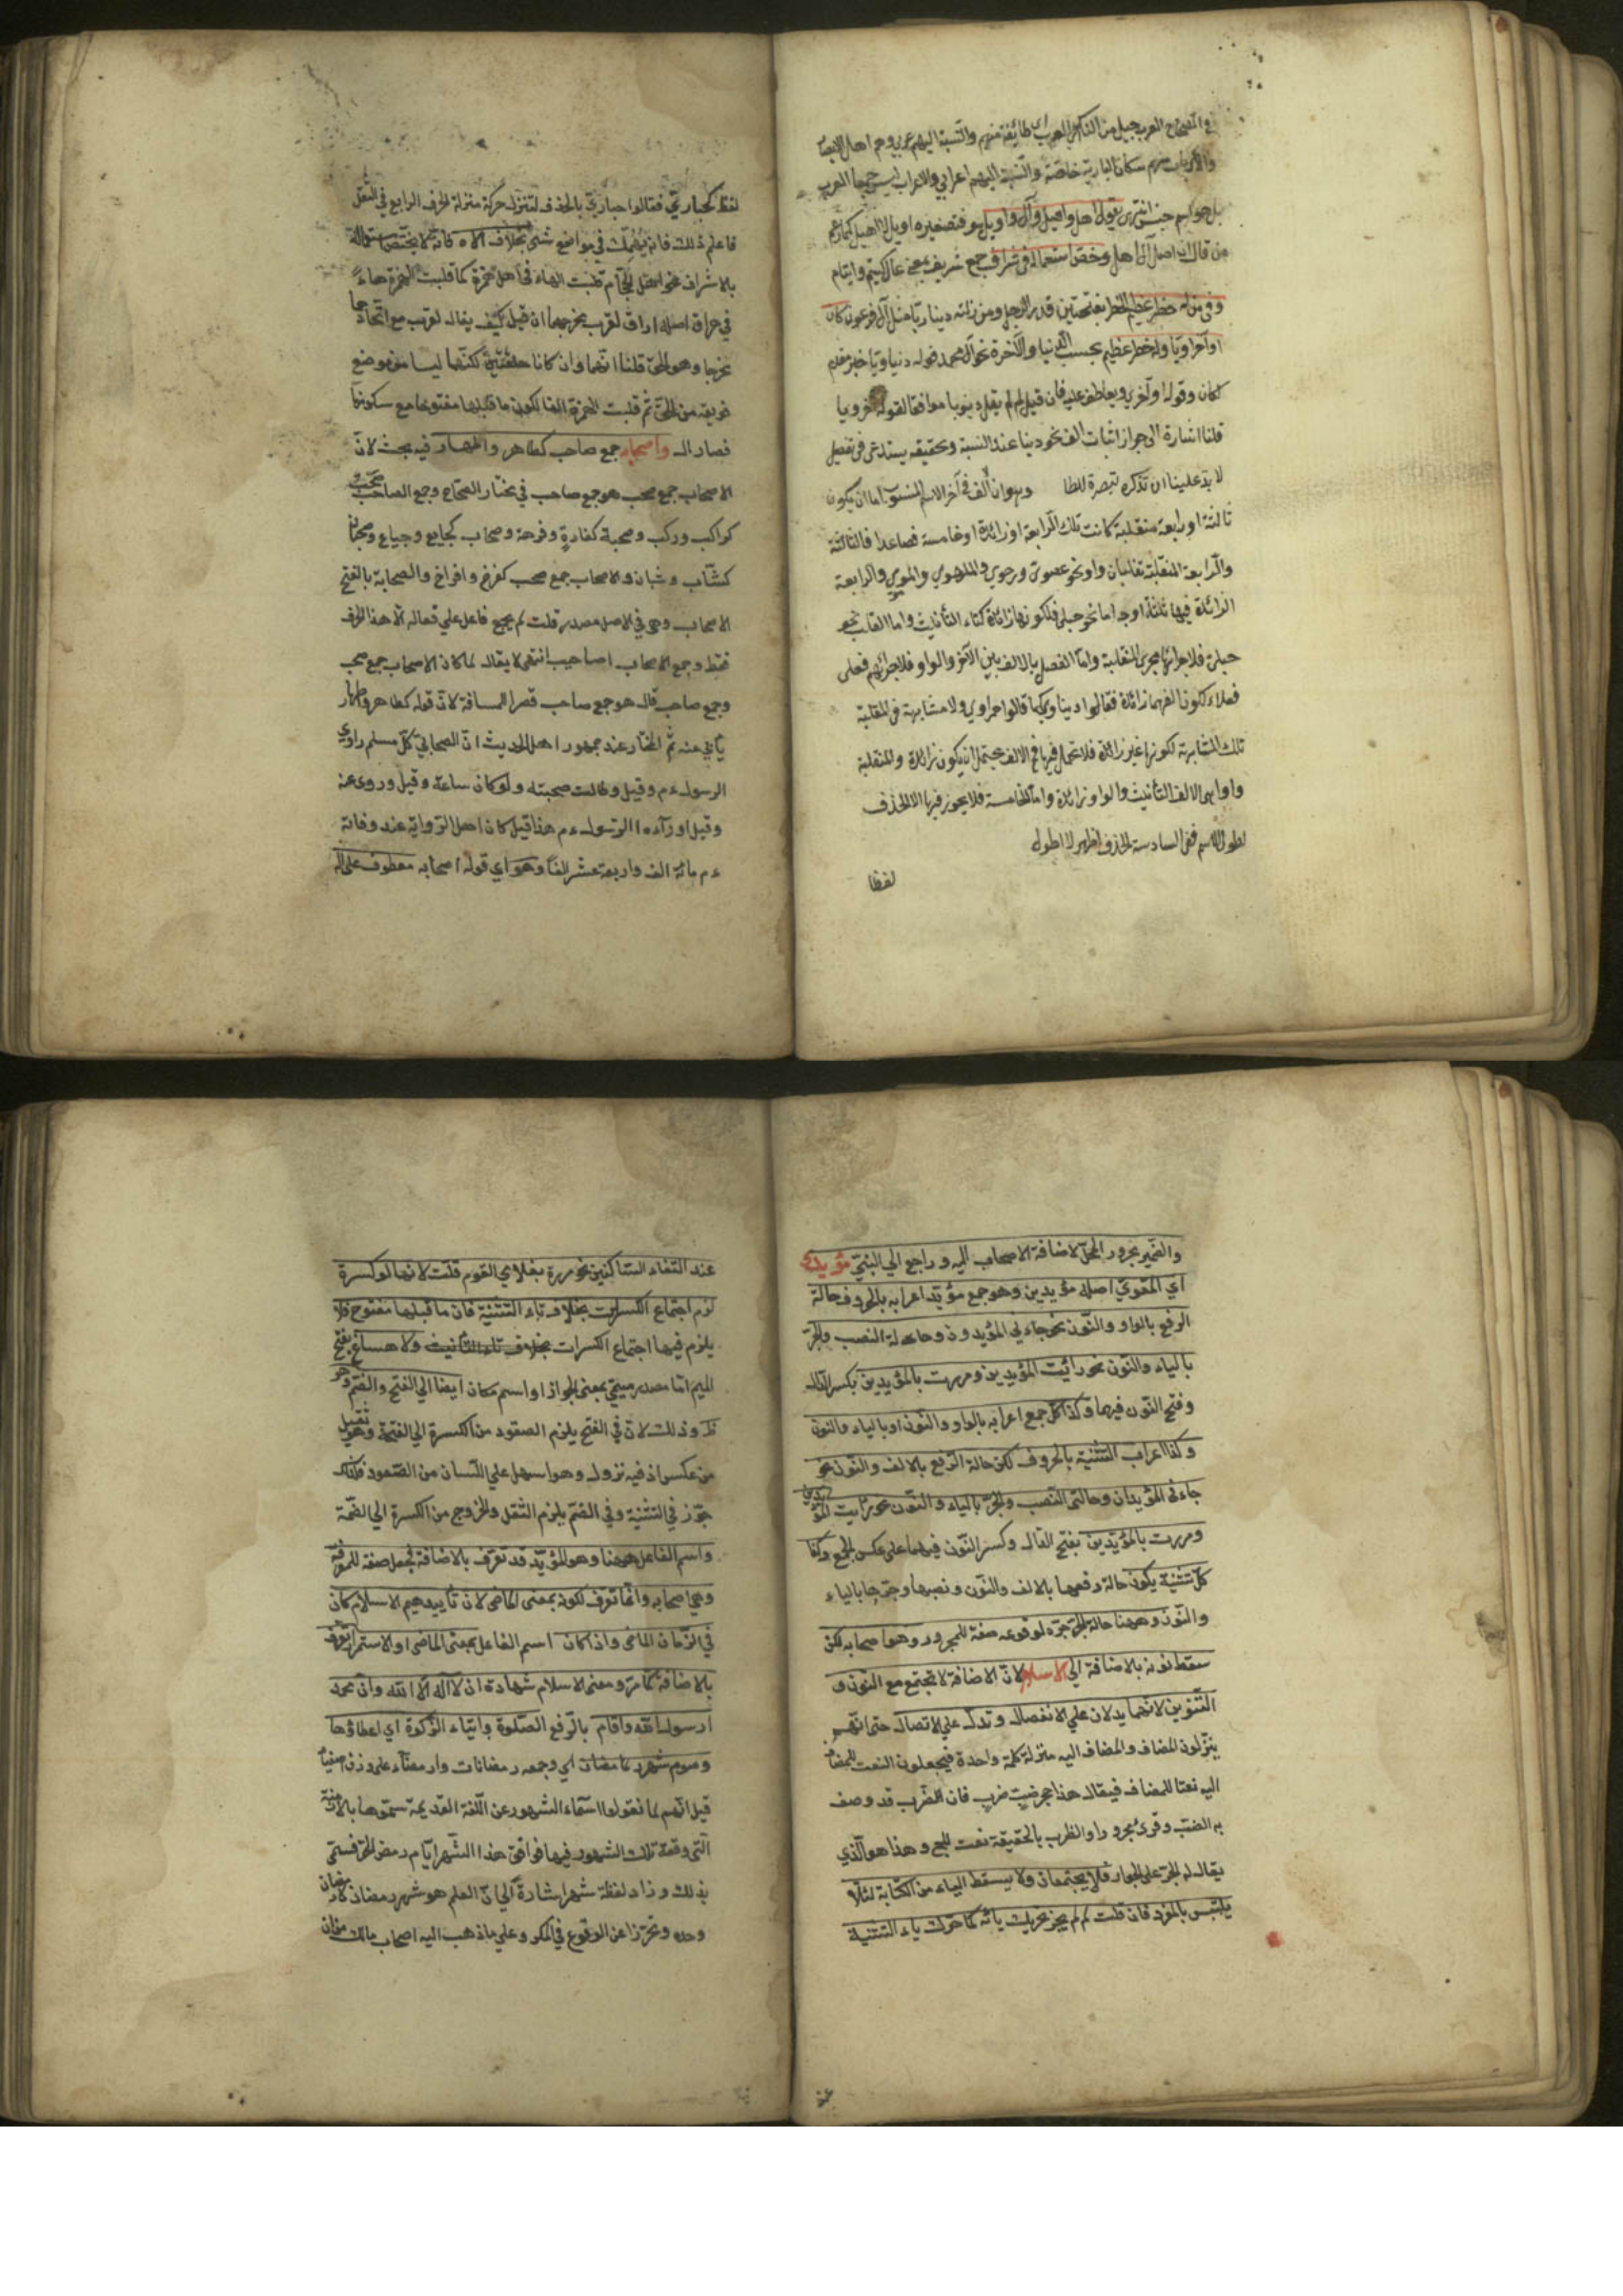 في الصحاح العرب جيل من الناس العرب اي طائفة منهم والنسبة اليهم عربي وهم اهل الامصار
والاعراب منهم سكان البادية خاصة والنسبة اليهم اعرابي والاعراب ليس جمعا للعرب
بل هو اسم جنس انتهى يقول اهل واهيل وآل واويل هو فتصغيره اويل لا اهيل كما زعم
من قال ان اصل آل اهل وخص استعماله في شراف جمع شريف بمعنى عال كيتيم وايتام
وفي من له خطر عظيم الخطر بفتحتين قدر الرجل ومنزلته دنياويا مثل آل فرعون كان
او آخراويا وله خطر عظيم بحسب الدنيا والآخرة نحو آل محمد قوله دنياويا خبر مقدم
لكان وقوله او آخري ويا عطف عليه فان قيل لم لم يقل دنيويا موافقا لقوله اخرويا
قلنا اشارة الى جواز اثبات الف نحو دنيا عند النسبة وتحقيقه يستدعي في تفصيل
لا بد علينا ان تذكره تبصرة للطا وهو ان الف في آخر الاسم المنسوب اما ان يكون
ثالثة او رابعة منقلبة كانت تلك الرابعة او زائدة او خامسة فصاعدا فالثالثة
والرابعة المنقلبة تقلبان واوا نحو عصوي ورحوي والملهوي والمرموي والرابعة
الزائدة فيها ثلثة اوجه اما نحو حبلي فلكونها زائدة كتاء التأنيث واما القلب نحو
حبلوي فلاجرائها مجرى المنقلبة واما الفصل بالالف بين الآخر والواو فلاجرائهم فعلى
فعلاء لكون الفهما زائدة فقالوا دنياوي كما قالوا حمراوي ولا مشابهة في المنقلبة
تلك المشابهة لكونها غير زائدة فلا تحمل فيها الالف يحتمل ان يكون زائدة والمنقلبة
واوا هي الالف التأنيث والواو زائدة واما الخامسة فلا يجوز فيها الا الحذف
لطول الاسم ففي السادسة الحذف اظهر لا اطول
لفظا
لفظ كحباري فقالوا حباري بالحذف لتنزل حركة منزلة الحرف الرابع في الثقل
فاعلم ذلك فانه يهمك في مواضع شتى بخلاف الاه فانه لا يختص استعماله
بالاشراف نحو اهل الحجام قلبت الهاء في اهل همزة كما قلبت الهمزة هاء
في هراق اصله اراق لقرب مخرجهما ان قيل كيف يقال لقرب مع اتحادهما
مخرجا وهو الحلق قلنا انهما وان كانا حلقتين لكنهما ليسا من موضع
قريبة من الحلق ثم قلبت الهمزة الفا لكون ما قبلها مفتوحا مع سكونها
فصار ال واصحابه جمع صاحب كطاهر واطهار فيه بحث لان
الاصحاب جمع صحب هو جمع صاحب في مختار الصحاح وجمع الصاحب صحب
كراكب وركب وصحبة كفارة وفرهة وصحاب كجايع وجياع وصحبان
كشاب وشبان والاصحاب جمع صحب كفرخ وافراخ والصحابة بالفتح
الاصحاب وهي في الاصل مصدر قلت لم يجمع فاعل على فعالة الا هذا الحرف
فقط وجمع الاصحاب اصاحيب انتهى لا يقال لما كان الاصحاب جمع صحب
وجمع صاحب قال هو جمع صاحب قصر المسافة لان قوله كطاهر واطهار
يأبي عنه ثم المختار عند جمهور اهل الحديث ان الصحابي كل مسلم راوي
الرسول ءم وقيل وطالت صحبته ولو كان ساعة وقيل وروى عنه
وقيل او رآءه الرسول ءم هذا قيل كان اهل الرواية عند وفاته
ءم مائة الف واربعة عشر الفا وهو اي قوله اصحابه معطوف على ال
والضمير مجرور المحل لاضافة الاصحاب اليه وراجع الي النبي مؤيدي
اي المقوي اصله مؤيدين وهو جمع مؤيد اعرابه بالحروف حالة
الرفع بالواو والنون نحو جاءني المؤيدون وحالة النصب والجر
بالياء والنون نحو رائيت المؤيدين ومررت بالمؤيدين بكسر الدال
وفتح النون فيهما وكذا كل جمع اعرابه بالواو والنون او بالياء والنون
وكذا اعراب التثنية بالحروف لكن حالة الرفع بالالف والنون نحو
جاءني المؤيدان وحالتي النصب والجر بالياء والنون نحو رأيت المؤيدين
ومررت بالمؤيدين بفتح الدال وكسر النون فيهما على عكس الجمع وكذا
كل تثنية يكون حالة رفعها بالالف والنون ونصبها وجرها بالياء
والنون وههنا حالة الجر جره لوقوعه صفة للمجرور وهو اصحابه لكن
سقط نونه بالاضافة الي الاسلام لان الاضافة لا تجتمع مع النون و
التنوين لانهما يدلان علي الانفصال وتدل علي الاتصال حتى انهم
ينزلون المضاف والمضاف اليه منزلة كلمة واحدة فيجعلون النعت للمضاف
اليه نعتا للمضاف فيقال هذا جحر ضب خرب فان الخرب قد وصف
به الضب وقرئ مجرورا والخرب بالحقيقة نعت للجحر وهذا هو الذي
يقال له الجر على الجوار فلا يجتمعان ولا يسقط الياء من الكتابة لئلا
يلتبس بالمفرد فان قلت لم لم يجز تحريك يائه كما حركت ياء التثنية
عند
عند التقاء الساكنين نحو مررة بغلامي القوم قلت لانها لو كسرة
لزم اجتماع الكسرات بخلاف تاء التثنية فان ما قبلها مفتوح فلا
يلزم فيها اجتماع الكسرات بخلاف تاء التأنيث ولا مساغ بفتح
الميم اما مصدر ميمي بمعنى الجواز او اسم مكان ايضا الي الفتح والضم وهو
ظ وذلك لان في الفتح يلزم الصقود من الكسرة الي الفتحة وهو ثقيل
من عكس اذ فيه نزول وهو اسهل علي اللسان من الصعود فلذلك
جوز في التثنية وفي الضم يلزم الثقل والخروج من الكسرة الي الضمة
واسم الفاعل ههنا وهو المؤيد قد تعرف بالاضافة فجعل صفة للمعرفة
وهي اصحابه وانما تعرف لكونه بمعنى الماضي لان تأييدهم الاسلام كان
في الزمان الماضي واذا كان اسم الفاعل بمعنى الماضي او الاستمرار تعرف
بالاضافة كما مر ومعنى الاسلام شهادة ان لا اله الا الله وان محمد
ارسول الله واقام بالرفع الصلوة وايتاء الزكوة اي اعطاؤها
وصوم شهر رمضان اي وجمعه رمضانات وارمضاء على وزن اصفياء
قيل انهم لما نقولوا اسماء الشهور عن اللغة القديمة سموها بالازمنة
التي وقعة تلك الشهور فيها فوافق هذا الشهر ايام رمض الحر فسمي
بذلك وزاد لفظة شهر اشارة الي ان العلم هو شهر رمضان لا رمضان
وحده وتحرزا عن الوقوع في المكروه علي ما ذهب اليه اصحاب مالك من ان